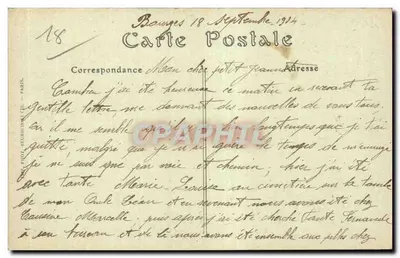 Bourges 18 septembre 1924
18
Carte Postale
Correspondance Mon cher petit Jeannot Adresse
Combien j'ai été heureuse ce matin en recevant ta
gentille lettre me donnant des nouvelles de vous tous.
car il me semble qu'il y a bien longtemps que je t'ai
quitté malgré que je n'ai guère le temps de m'ennuyer
je ne suis que par voie et chemin; hier j'ai été
avec tante Marie Louise au cimetière sur la tombe
de mon Oncle Léon et en revenant nous avons été chez
Cousine Marcelle, puis après j'ai été chercher Tante Fernande
à son bureau et de là nous avons été ensemble aux